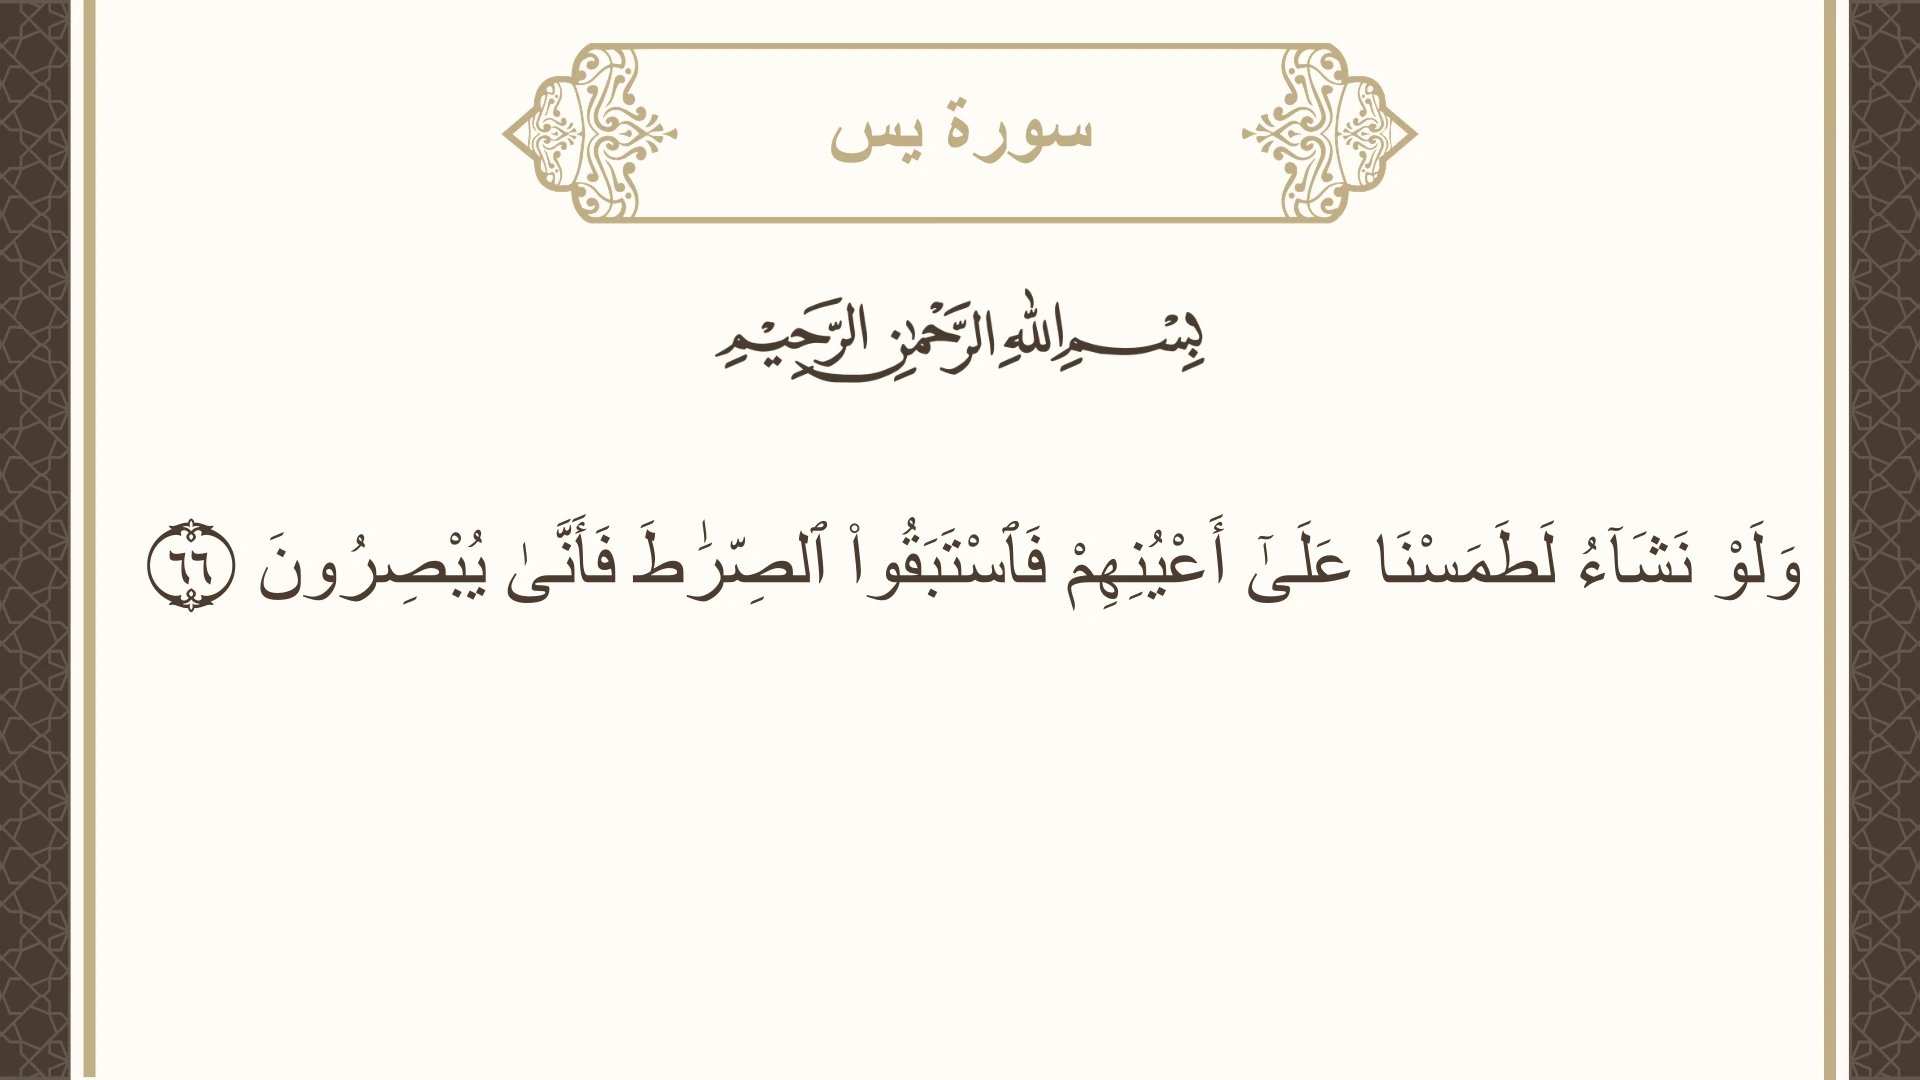 سورة يس
بِسْمِ اللهِ الرَّحْمٰنِ الرَّحِيْمِ
وَلَوْ نَشَآءُ لَطَمَسْنَا عَلَىٰٓ أَعْيُنِهِمْ فَٱسْتَبَقُوا۟ ٱلصِّرَٰطَ فَأَنَّىٰ يُبْصِرُونَ ٦٦